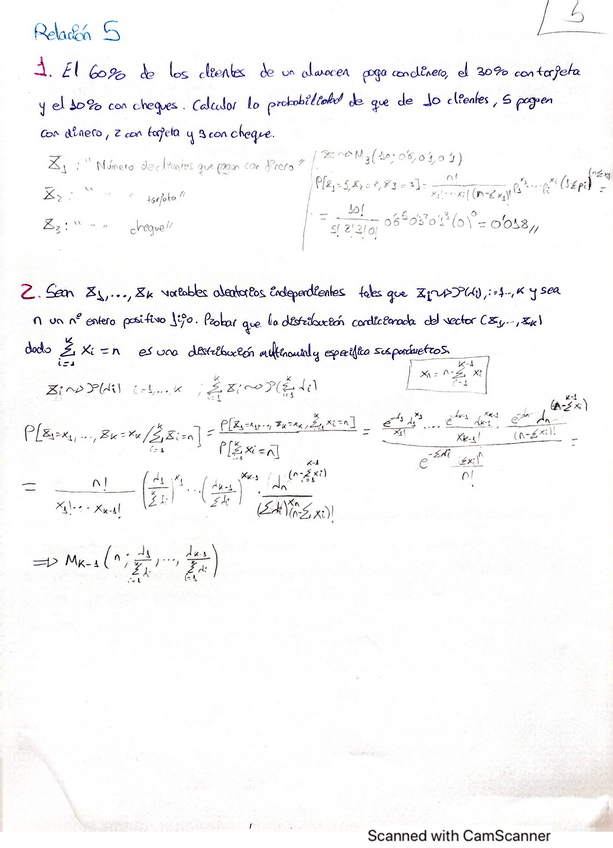 5
Relación 5
1. El 60% de los clientes de un almacen paga con dinero, el 30% con tarjeta
y el 10% con cheques. Calcular la probabilidad de que de 10 clientes, 5 paguen
con dinero, 2 con tarjeta y 3 con cheque.
X₁ : "Número de clientes que pagan con dinero"
X₂ : " " " tarjeta"
X₃ : " " " cheque"
X ~> M₃(10; 0'6, 0'3, 0'1)
P[X₁=5, X₂=2, X₃=3] = n! / (x₁! ··· xᵢ! (n-Σxᵢ)!) p₁^x₁ ··· pᵢ^xᵢ (1-Σpᵢ)^(n-Σxᵢ) =
= 10! / (5! 2! 3! 0!) 0'6⁵ 0'3² 0'1³ (0)⁰ = 0'018 //
2. Sean X₁, ..., Xₖ variables aleatorias independientes tales que Xᵢ ~> P(λᵢ), i=1,..., k y sea
n un nº entero positivo fijo. Probar que la distribución condicionada del vector (X₁, ..., Xₖ)
dado Σᵢ₌₁ᵏ Xᵢ = n es una distribución multinomial y especifica sus parámetros.
xₙ = n - Σᵢ₌₁ᵏ⁻¹ xᵢ
Xᵢ ~> P(λᵢ) i=1,... k ; Σᵢ₌₁ᵏ Xᵢ ~> P(Σᵢ₌₁ᵏ λᵢ)
P[X₁=x₁, ..., Xₖ=xₖ / Σᵢ₌₁ᵏ Xᵢ=n] = P[X₁=x₁, ..., Xₖ=xₖ, Σᵢ₌₁ᵏ Xᵢ=n] / P[Σᵢ₌₁ᵏ Xᵢ=n] = (e^-λ₁ λ₁^x₁ / x₁! ···· e^-λₖ₋₁ λₖ₋₁^xₖ₋₁ / xₖ₋₁! · e^-λₙ λₙ^(n-Σxᵢ) / (n-Σxᵢ)!) / (e^-Σλᵢ (Σλᵢ)ⁿ / n!) =
= n! / (x₁! ··· xₖ₋₁!) (λ₁ / Σᵢ₌₁ᵏ λᵢ)^x₁ ··· (λₖ₋₁ / Σλᵢ)^xₖ₋₁ · λₙ^(n-Σᵢ₌₁ᵏ⁻¹ xᵢ) / ((Σλᵢ)^xₙ (n-Σxᵢ)!)
=> Mₖ₋₁ (n; λ₁ / Σᵢ₌₁ᵏ λᵢ, ..., λₖ₋₁ / Σᵢ₌₁ᵏ λᵢ)
Scanned with CamScanner